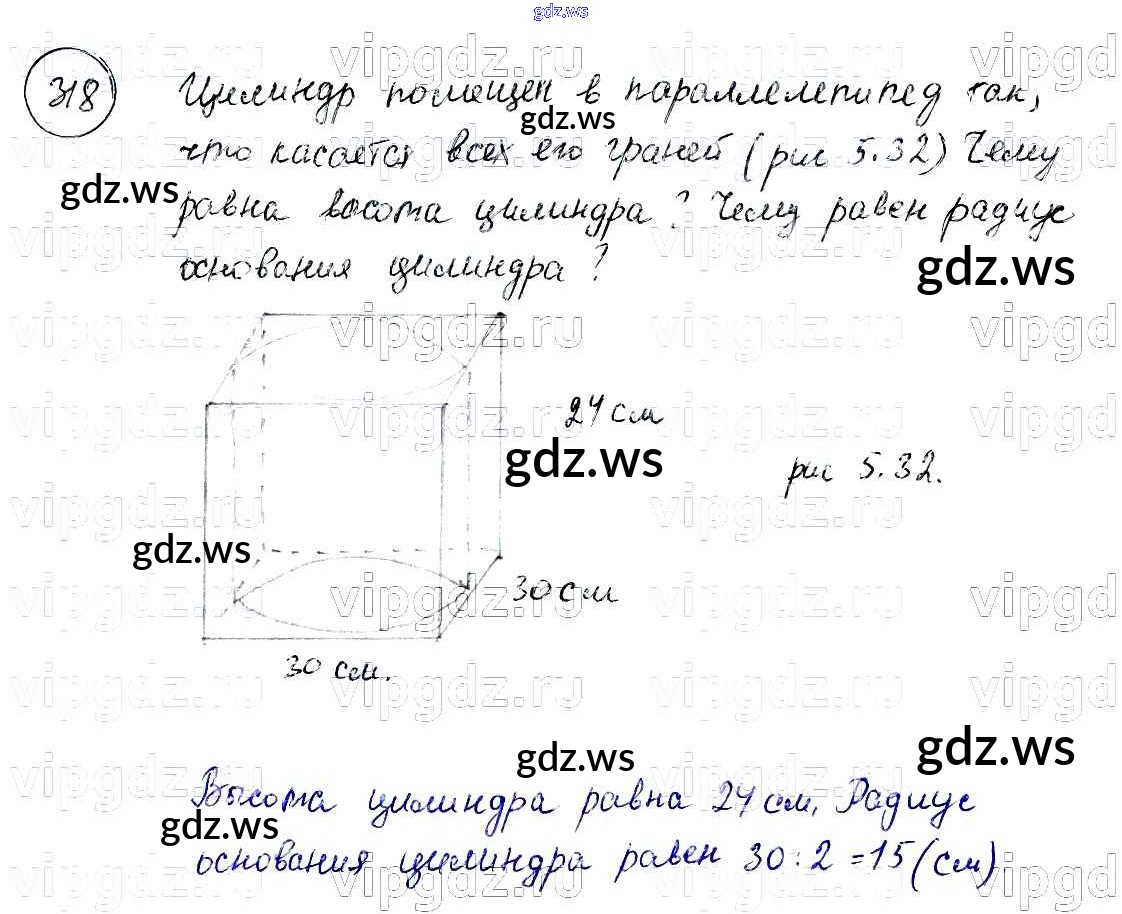 gdz.ws
318
Цилиндр помещен в параллелепипед так,
что касается всех его граней (рис 5.32) Чему
равна высота цилиндра? Чему равен радиус
основания цилиндра?
24 см
рис 5.32.
30 см
30 см.
Высота цилиндра равна 24 см, Радиус
основания цилиндра равен 30:2=15(см)
gdz.ws
gdz.ws
gdz.ws
gdz.ws
gdz.ws
gdz.ws
gdz.ws
gdz.ws
vipgdz.ru